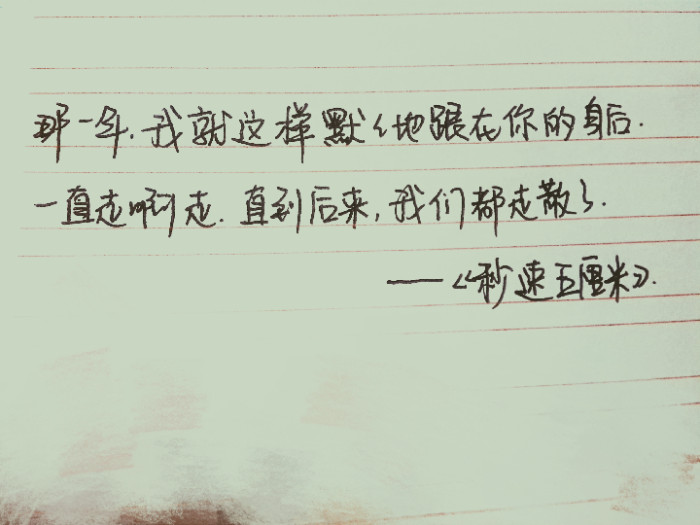 那一年.我就这样默々地跟在你的身后.
一直走啊走.直到后来,我们都走散了.
——《秒速五厘米》.